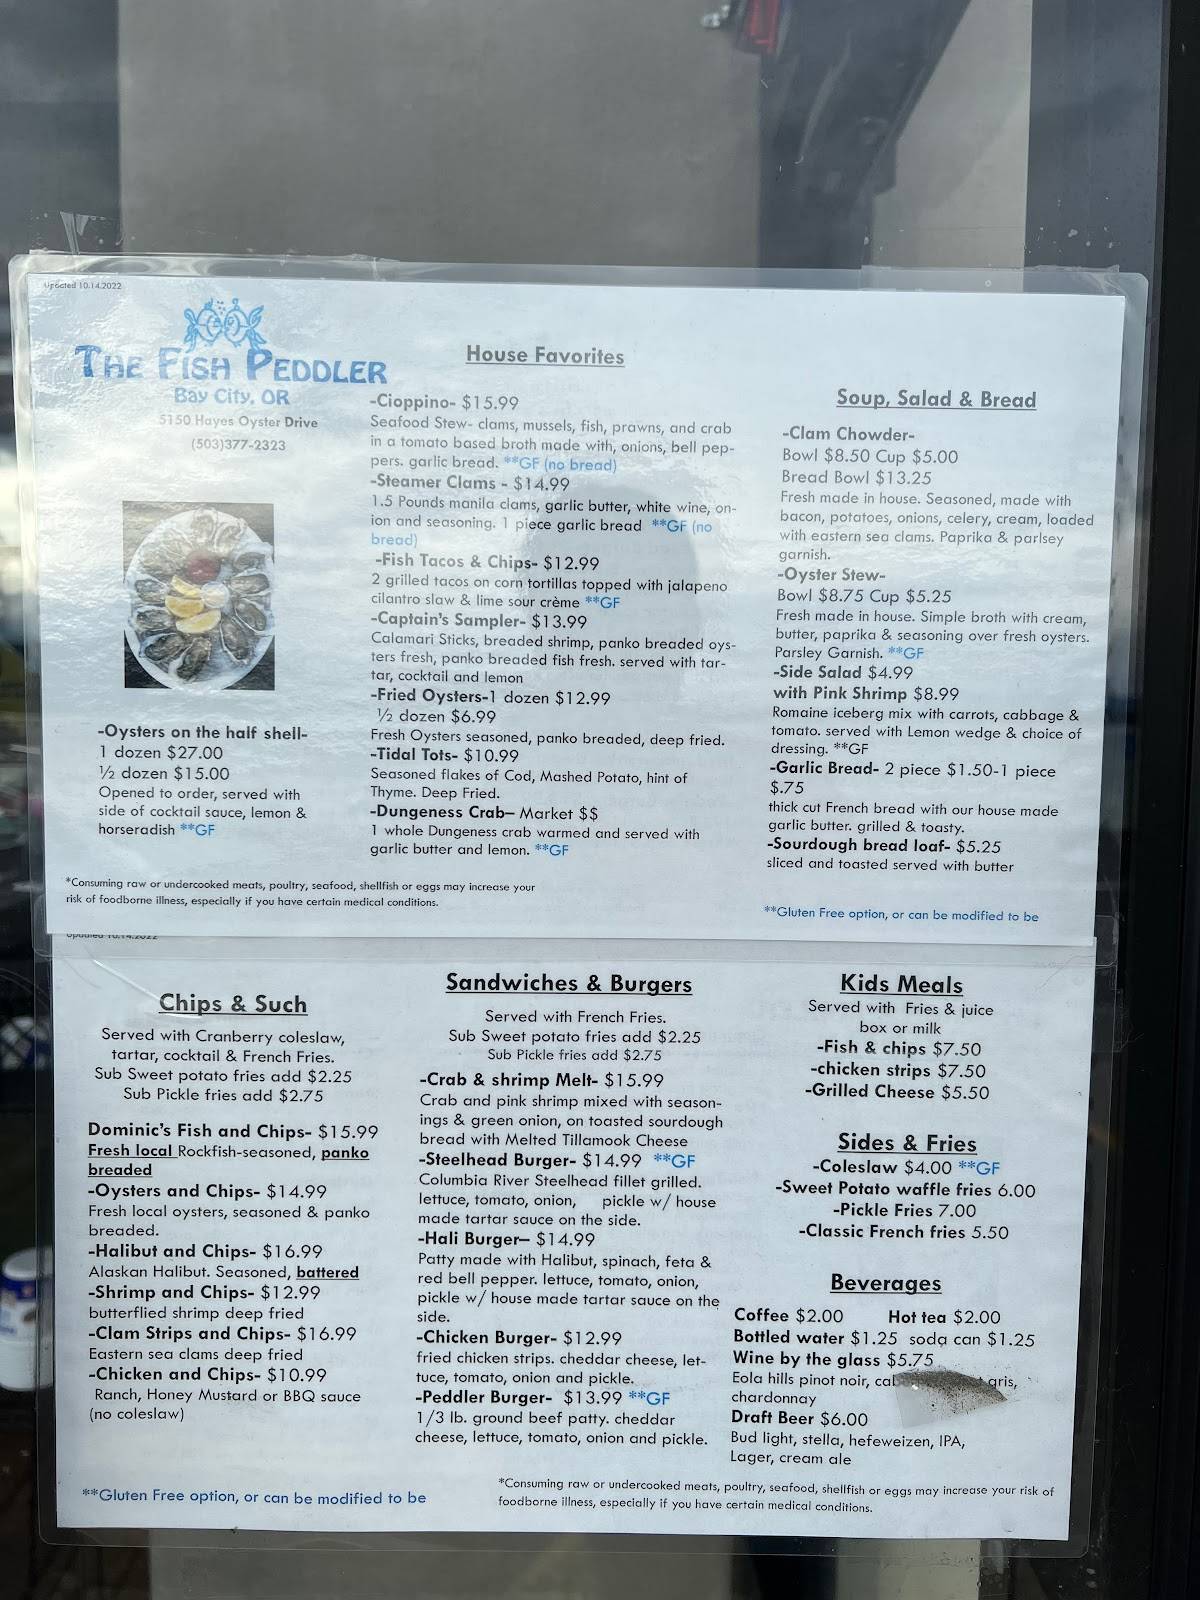 Updated 10.14.2022
THE FISH PEDDLER
Bay City, OR
5150 Hayes Oyster Drive
(503)377-2323
-Oysters on the half shell-
1 dozen $27.00
½ dozen $15.00
Opened to order, served with
side of cocktail sauce, lemon &
horseradish **GF
House Favorites
-Cioppino- $15.99
Seafood Stew- clams, mussels, fish, prawns, and crab
in a tomato based broth made with, onions, bell pep-
pers. garlic bread. **GF (no bread)
-Steamer Clams - $14.99
1.5 Pounds manila clams, garlic butter, white wine, on-
ion and seasoning. 1 piece garlic bread **GF (no
bread)
-Fish Tacos & Chips- $12.99
2 grilled tacos on corn tortillas topped with jalapeno
cilantro slaw & lime sour crème **GF
-Captain's Sampler- $13.99
Calamari Sticks, breaded shrimp, panko breaded oys-
ters fresh, panko breaded fish fresh. served with tar-
tar, cocktail and lemon
-Fried Oysters-1 dozen $12.99
½ dozen $6.99
Fresh Oysters seasoned, panko breaded, deep fried.
-Tidal Tots- $10.99
Seasoned flakes of Cod, Mashed Potato, hint of
Thyme. Deep Fried.
-Dungeness Crab– Market $$
1 whole Dungeness crab warmed and served with
garlic butter and lemon. **GF
Soup, Salad & Bread
-Clam Chowder-
Bowl $8.50 Cup $5.00
Bread Bowl $13.25
Fresh made in house. Seasoned, made with
bacon, potatoes, onions, celery, cream, loaded
with eastern sea clams. Paprika & parlsey
garnish.
-Oyster Stew-
Bowl $8.75 Cup $5.25
Fresh made in house. Simple broth with cream,
butter, paprika & seasoning over fresh oysters.
Parsley Garnish. **GF
-Side Salad $4.99
with Pink Shrimp $8.99
Romaine iceberg mix with carrots, cabbage &
tomato. served with Lemon wedge & choice of
dressing. **GF
-Garlic Bread- 2 piece $1.50-1 piece
$.75
thick cut French bread with our house made
garlic butter. grilled & toasty.
-Sourdough bread loaf- $5.25
sliced and toasted served with butter
*Consuming raw or undercooked meats, poultry, seafood, shellfish or eggs may increase your
risk of foodborne illness, especially if you have certain medical conditions.
**Gluten Free option, or can be modified to be
Updated 10.14.2022
Chips & Such
Served with Cranberry coleslaw,
tartar, cocktail & French Fries.
Sub Sweet potato fries add $2.25
Sub Pickle fries add $2.75
Dominic's Fish and Chips- $15.99
Fresh local Rockfish-seasoned, panko
breaded
-Oysters and Chips- $14.99
Fresh local oysters, seasoned & panko
breaded.
-Halibut and Chips- $16.99
Alaskan Halibut. Seasoned, battered
-Shrimp and Chips- $12.99
butterflied shrimp deep fried
-Clam Strips and Chips- $16.99
Eastern sea clams deep fried
-Chicken and Chips- $10.99
Ranch, Honey Mustard or BBQ sauce
(no coleslaw)
Sandwiches & Burgers
Served with French Fries.
Sub Sweet potato fries add $2.25
Sub Pickle fries add $2.75
-Crab & shrimp Melt- $15.99
Crab and pink shrimp mixed with season-
ings & green onion, on toasted sourdough
bread with Melted Tillamook Cheese
-Steelhead Burger- $14.99 **GF
Columbia River Steelhead fillet grilled.
lettuce, tomato, onion, pickle w/ house
made tartar sauce on the side.
-Hali Burger– $14.99
Patty made with Halibut, spinach, feta &
red bell pepper. lettuce, tomato, onion,
pickle w/ house made tartar sauce on the
side.
-Chicken Burger- $12.99
fried chicken strips. cheddar cheese, let-
tuce, tomato, onion and pickle.
-Peddler Burger- $13.99 **GF
1/3 lb. ground beef patty. cheddar
cheese, lettuce, tomato, onion and pickle.
Kids Meals
Served with Fries & juice
box or milk
-Fish & chips $7.50
-chicken strips $7.50
-Grilled Cheese $5.50
Sides & Fries
-Coleslaw $4.00 **GF
-Sweet Potato waffle fries 6.00
-Pickle Fries 7.00
-Classic French fries 5.50
Beverages
Coffee $2.00 Hot tea $2.00
Bottled water $1.25 soda can $1.25
Wine by the glass $5.75
Eola hills pinot noir, gris,
chardonnay
Draft Beer $6.00
Bud light, stella, hefeweizen, IPA,
Lager, cream ale
**Gluten Free option, or can be modified to be
*Consuming raw or undercooked meats, poultry, seafood, shellfish or eggs may increase your risk of
foodborne illness, especially if you have certain medical conditions.